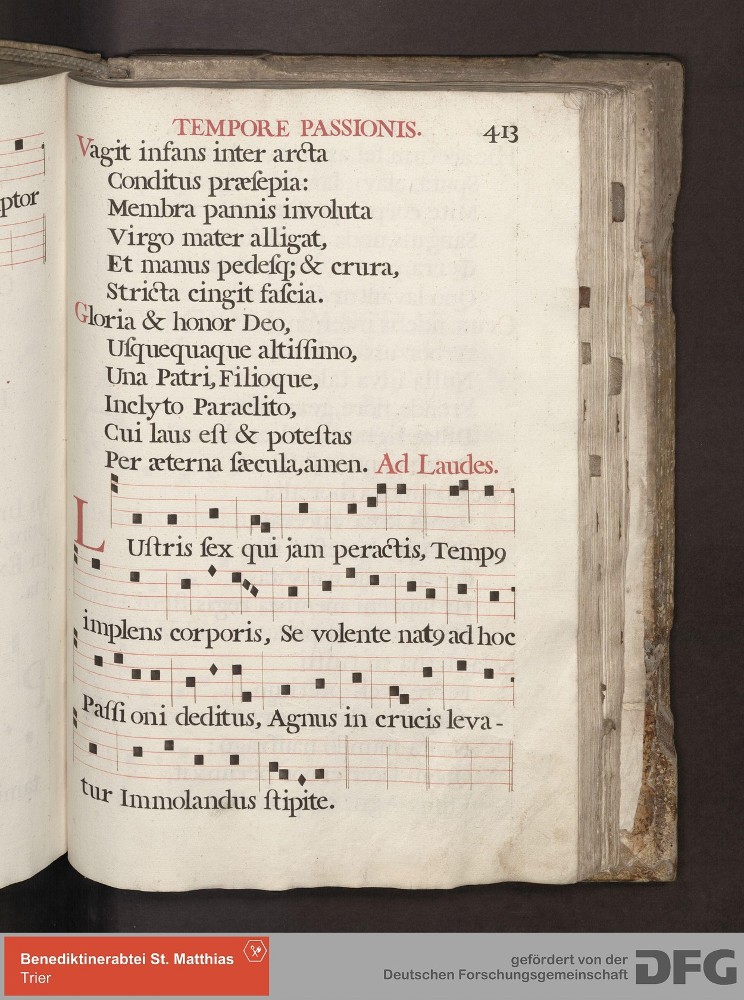 ptor
TEMPORE PASSIONIS. 413
Vagit infans inter arcta
Conditus præſepia:
Membra pannis involuta
Virgo mater alligat,
Et manus pedeſq; & crura,
Stricta cingit faſcia.
Gloria & honor Deo,
Uſquequaque altiſſimo,
Una Patri, Filioque,
Inclyto Paraclito,
Cui laus eſt & poteſtas
Per æterna ſæcula, amen. Ad Laudes.
LUſtris ſex qui jam peractis, Tempꝯ
implens corporis, Se volente natꝯ ad hoc
Paſſi oni deditus, Agnus in crucis leva-
tur Immolandus ſtipite.
Benediktinerabtei St. Matthias
Trier
gefördert von der
Deutschen Forschungsgemeinschaft
DFG